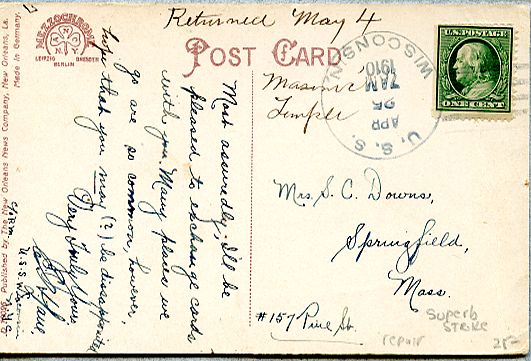 Returned May 4
POST CARD
MEZZOCHROME
A N C
N.Y.
LEIPZIG DRESDEN
BERLIN
Made in Germany.
Published by The New Orleans News Company, New Orleans, La.
U.S. POSTAGE
ONE CENT
U. S. S. WISCONSIN
APR
25
7AM
1910
Masonic
Temple
Mrs. S. C. Downs,
Springfield,
Mass.
#157 Pine St.
Most assuredly; I'll be
pleased to exchange cards
with you. Many places we
go are so common, however,
that you may (?) be disappointed
Very Truly Yours
U.S.S. Wisconsin
Superb
STRIKE
repair
25-